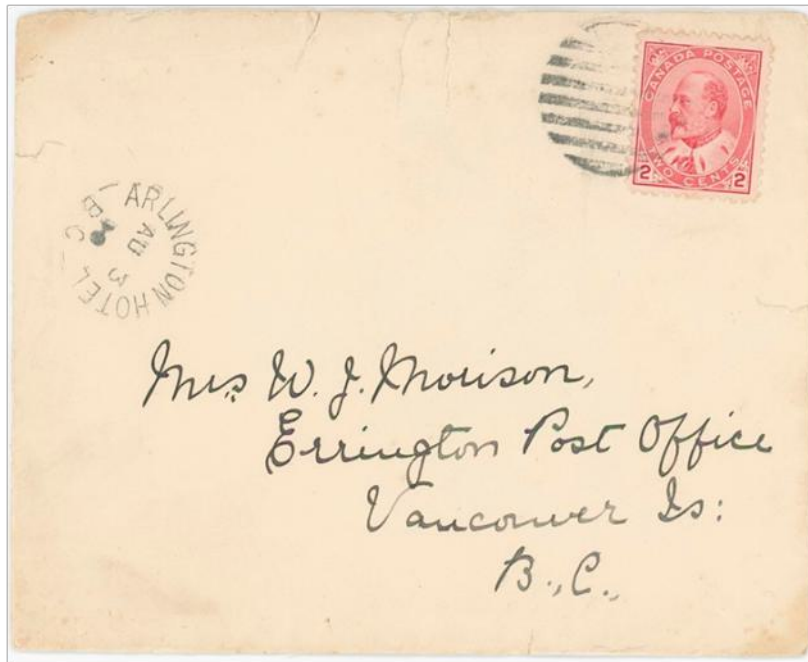 CANADA POSTAGE
TWO CENTS
2 2
ARLINGTON HOTEL
B.C.
AU 3
Mrs W. J. Morison,
Errington Post Office
Vancouver Is:
B., C.,